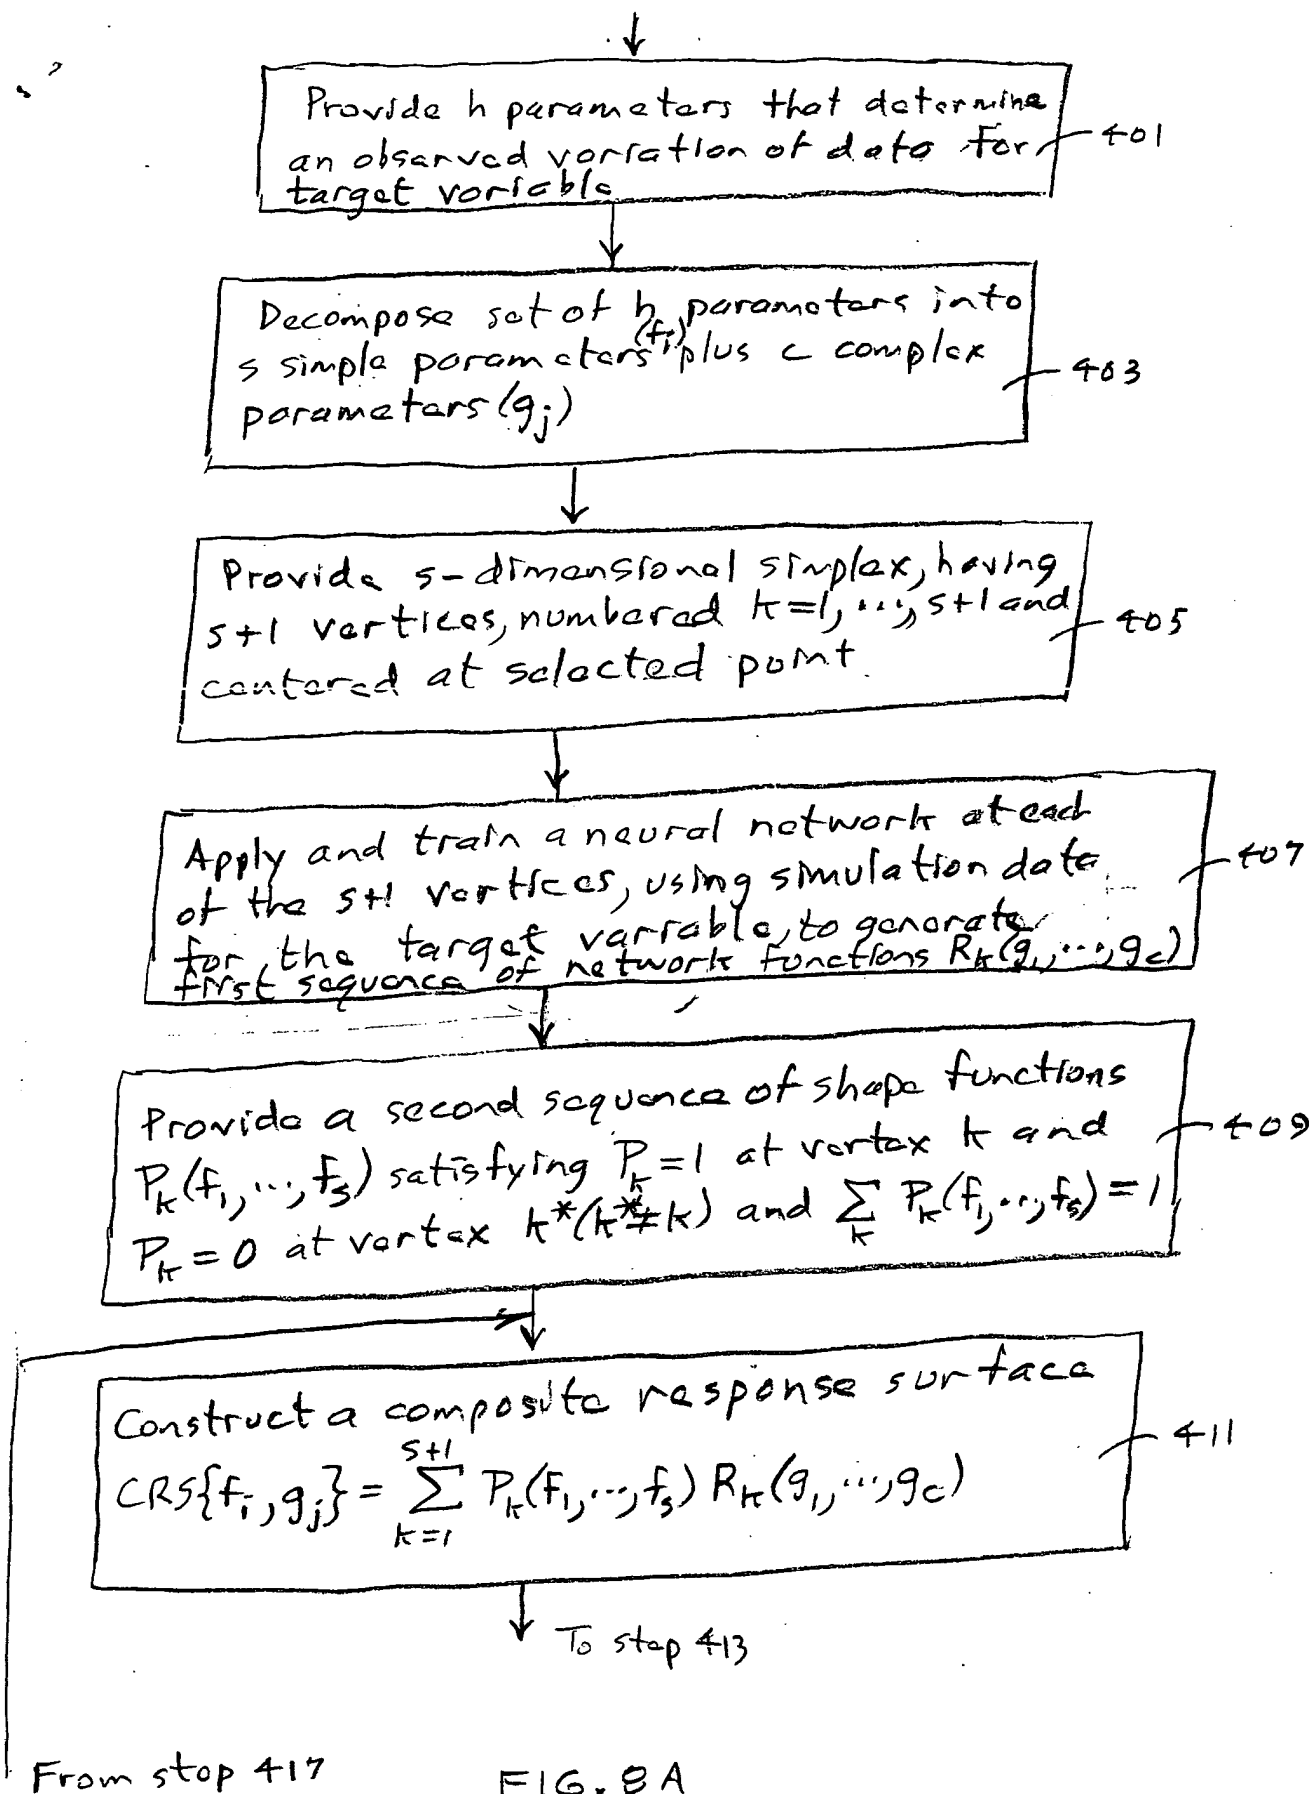 Provide h parameters that determine
an observed variation of data for
target variable
401
Decompose set of h parameters into
s simple parameters (fi) plus c complex
parameters (gj)
403
Provide s-dimensional simplex, having
s+1 vertices, numbered k=1, ..., s+1 and
centered at selected point.
405
Apply and train a neural network at each
of the s+1 vertices, using simulation data
for the target variable, to generate
first sequence of network functions Rk(g1, ..., gc)
407
Provide a second sequence of shape functions
Pk(f1, ..., fs) satisfying Pk=1 at vertex k and
Pk=0 at vertex k*(k*≠k) and ∑k Pk(f1, ..., fs)=1
409
Construct a composite response surface
CRS{fi, gj} = ∑k=1s+1 Pk(f1, ..., fs) Rk(g1, ..., gc)
411
To step 413
From step 417
FIG. 8A